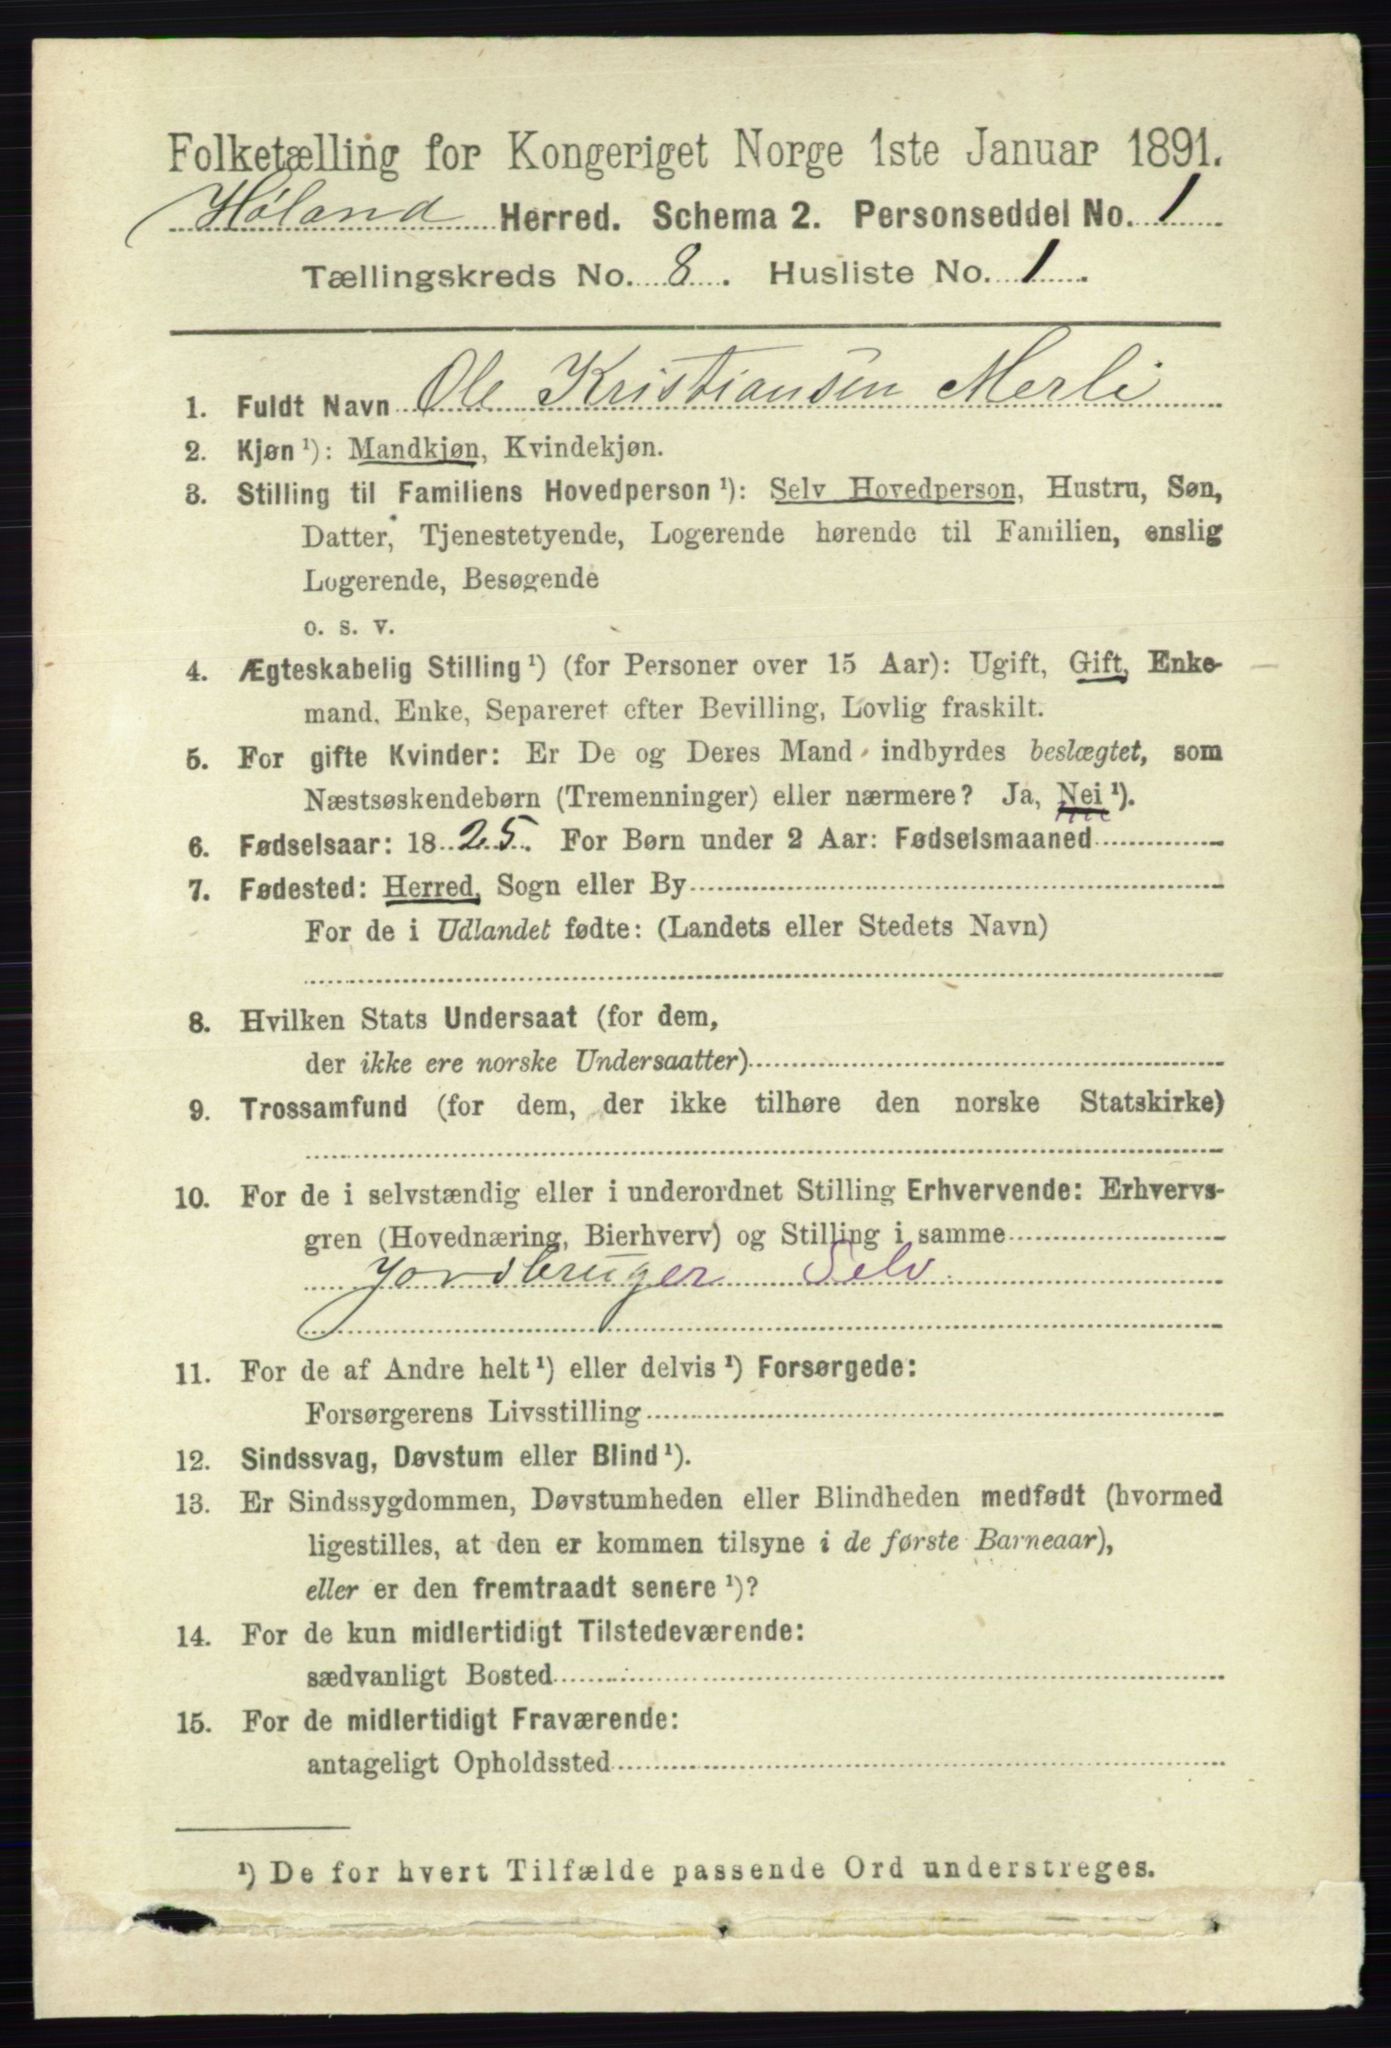 Folketælling for Kongeriget Norge 1ste Januar 1891.
Høland Herred. Schema 2. Personseddel No. 1
Tællingskreds No. 8. Husliste No. 1.
1. Fuldt Navn Ole Kristiansen Merli
2. Kjøn ¹): Mandkjøn, Kvindekjøn.
3. Stilling til Familiens Hovedperson ¹): Selv Hovedperson, Hustru, Søn,
Datter, Tjenestetyende, Logerende hørende til Familien, enslig
Logerende, Besøgende
o. s. v.
4. Ægteskabelig Stilling ¹) (for Personer over 15 Aar): Ugift, Gift, Enke-
mand, Enke, Separeret efter Bevilling, Lovlig fraskilt.
5. For gifte Kvinder: Er De og Deres Mand indbyrdes beslægtet, som
Næstsøskendebørn (Tremenninger) eller nærmere? Ja, Nei ¹).
6. Fødselsaar: 1825. For Børn under 2 Aar: Fødselsmaaned
7. Fødested: Herred, Sogn eller By
For de i Udlandet fødte: (Landets eller Stedets Navn)
8. Hvilken Stats Undersaat (for dem,
der ikke ere norske Undersaatter)
9. Trossamfund (for dem, der ikke tilhøre den norske Statskirke)
10. For de i selvstændig eller i underordnet Stilling Erhvervende: Erhvervs-
gren (Hovednæring, Bierhverv) og Stilling i samme
Jordbruger Selv.
11. For de af Andre helt ¹) eller delvis ¹) Forsørgede:
Forsørgerens Livsstilling
12. Sindssvag, Døvstum eller Blind ¹).
13. Er Sindssygdommen, Døvstumheden eller Blindheden medfødt (hvormed
ligestilles, at den er kommen tilsyne i de første Barneaar),
eller er den fremtraadt senere ¹)?
14. For de kun midlertidigt Tilstedeværende:
sædvanligt Bosted
15. For de midlertidigt Fraværende:
antageligt Opholdssted
¹) De for hvert Tilfælde passende Ord understreges.